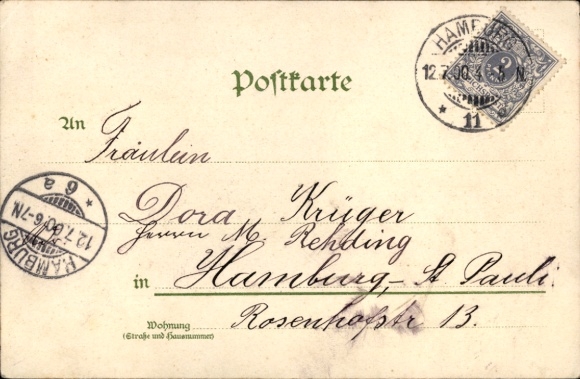 HAMBURG
12.7.00.4-5 N.
* 11 a
Postkarte
An
Fräulein
Dora Krüger
Herrn M. Rehding
in Hamburg,- St Pauli.
Wohnung
(Straße und Hausnummer)
Rosenhofstr 13.
HAMBURG
12.7.00/6-7N.
* 6 a